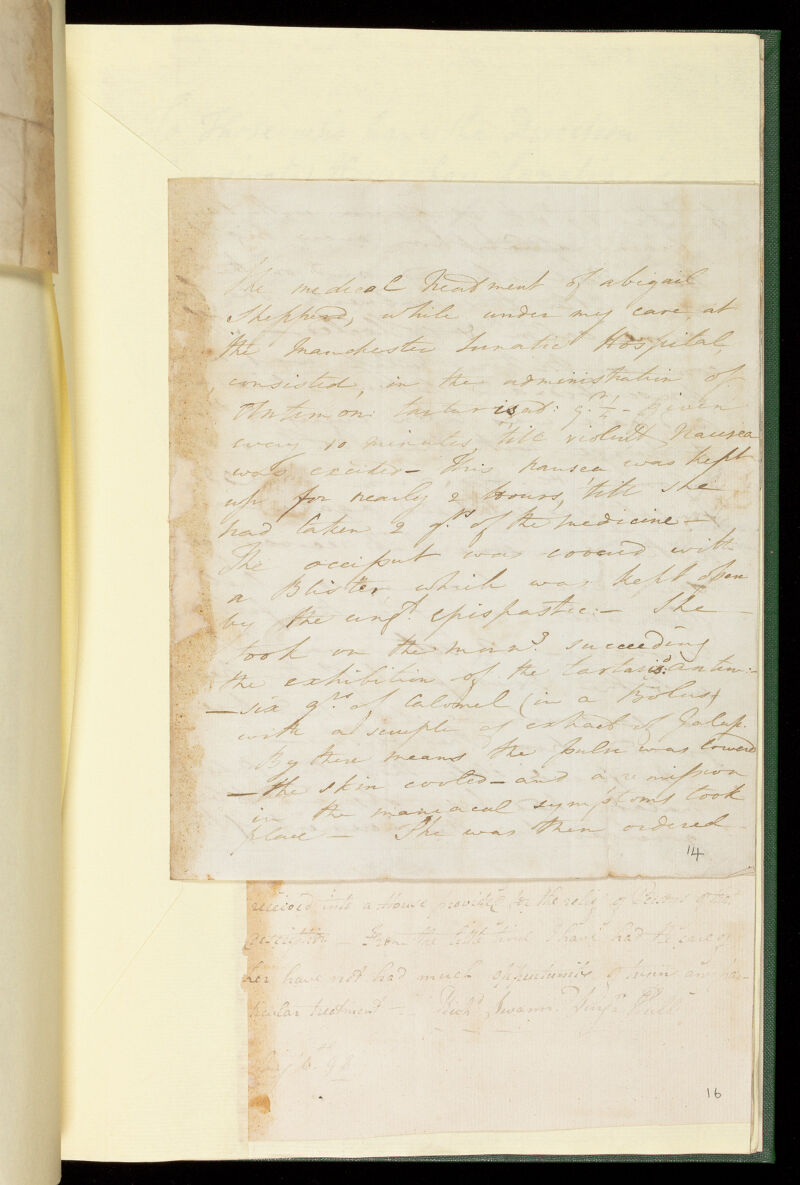 The medical treatment of abigail
Shepherd, while under my care at
the Manchester Lunatic Hospital,
consisted, in the administration of
Antimon: tartarisat: gr. ½ - given
every 10 minutes, till violent Nausea
was excited - This nausea was kept
up for nearly 2 Hours, till she
had taken 2 grs. of the medicine -
The occiput was covered with
a Blister, which was kept open
by the ungt. epispastic: - She -
took on the morng. succeeding
the exhibition of the tartarisd. antim: -
- six grs. of Calomel (in a Bolus)
with a scruple of extract of Jalap.
By these means the pulse was lowered
- the skin cooled - and a remission
in the maniacal symptoms took
place - She was then ordered
14
received into a House provided for the relief of Persons of this
description - From the little time I have had the care of
her have not had much opportunities of trying any par-
ticular treatment - Richd. Swann. Surgn. Hull
16